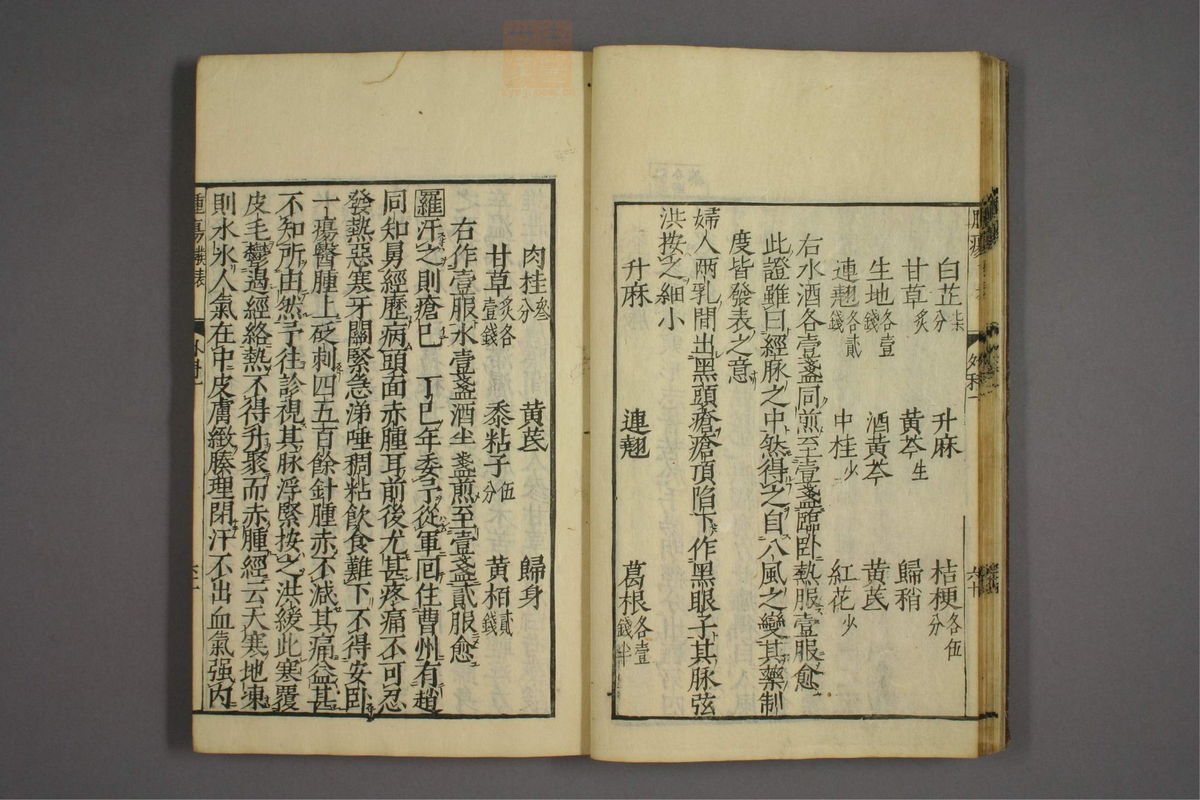 白芷柒分　升麻　桔梗各伍分
甘草炙　黄芩生　歸稍
生地各壹錢　酒黄芩　黄芪
連翹各貳錢　中桂少　紅花少
右水酒各壹盞同煎至壹盞臨卧熱服壹服愈
此證雖曰經脉之中然得之自八風之變其藥制
度皆發表之意
婦人兩乳間出黑頭瘡瘡頂陷下作黑眼子其脉弦
洪按之細小
升麻　連翹　葛根各壹錢半
肉桂叁分　黄芪　歸身
甘草炙各壹錢　黍粘子伍分　黄栢貳錢
右作壹服水壹盞酒半盞煎至壹盞貳服愈
羅汗之則瘡已　丁巳年委予從軍囘住曹州有趙
同知舅經歷病頭面赤腫耳前後尤甚疼痛不可忍
發熱惡寒牙關緊急涕唾稠粘飲食難下不得安卧
一瘍醫腫上砭刺四五百餘針腫赤不減其痛益甚
不知所由然予往診視其脉浮緊按之洪緩此寒覆
皮毛欝遏經絡熱不得升聚而赤腫經云天寒地凍
則水氷人氣在中皮膚緻腠理閉汗不出血氣强内